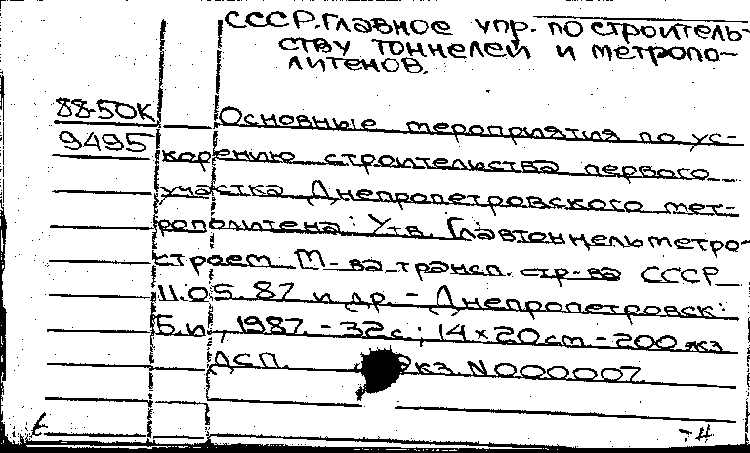 СССР. Главное упр. по строитель-
ству тоннелей и метропо-
литенов.
88-50К
9495
Основные мероприятия по ус-
корению строительства первого
участка Днепропетровского мет-
рополитена: Утв. Главтоннельметро-
строем М-ва трансп. стр-ва СССР
11.05.87 и др. - Днепропетровск:
Б.и., 1987. - 32 с.; 14×20 см - 200 экз
ДСП. Экз. N000007.